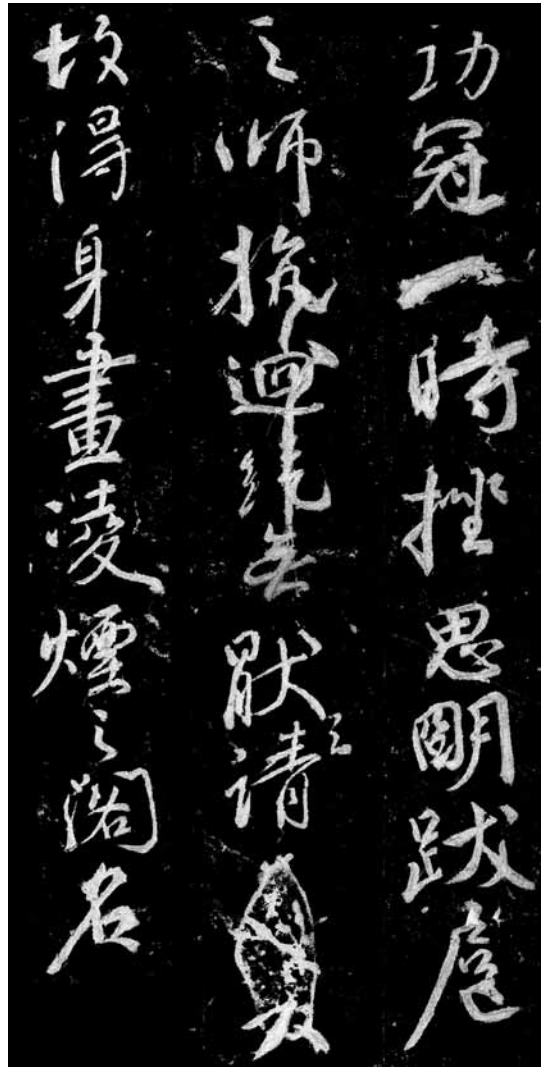 功冠一時挫思明跋扈
之師抗迴紇無猒之請
故得身畫凌煙之閣名